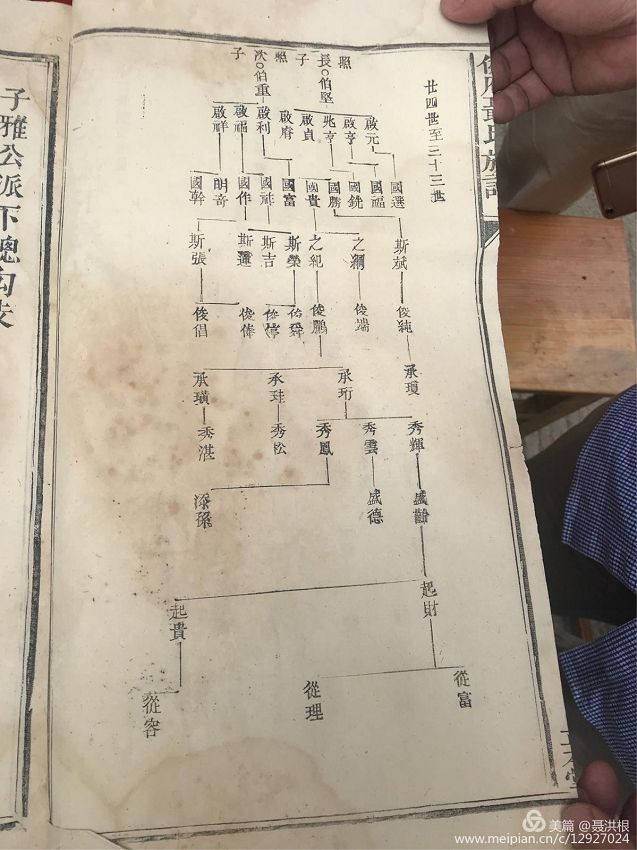 廿四世至三十三世
照
長○伯堅
子
照
次○伯重
子
啟元
啟亨
兆亨
啟貞
啟膺
啟利
啟福
啟祥
國選
國福
國銑
國勝
國貴
國富
國祥
國作
明音
國幹
斯斌
之綱
之紀
斯榮
斯吉
斯運
斯張
俊純
俊端
俊鵬
佑舜
俊偉
俊倡
承瓊
承珩
承珪
承璜
秀輝
秀雲
秀鳳
秀松
秀湛
盛德
起財
起貴
從富
從理
從容
子雅公派下總勾表
美篇 @聂洪根
www.meipian.cn/c/12927024